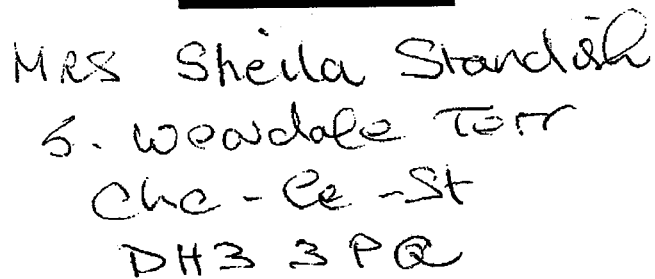 MRS Sheila Standish
5. Weardale Terr
Che - le - St
DH3 3PQ